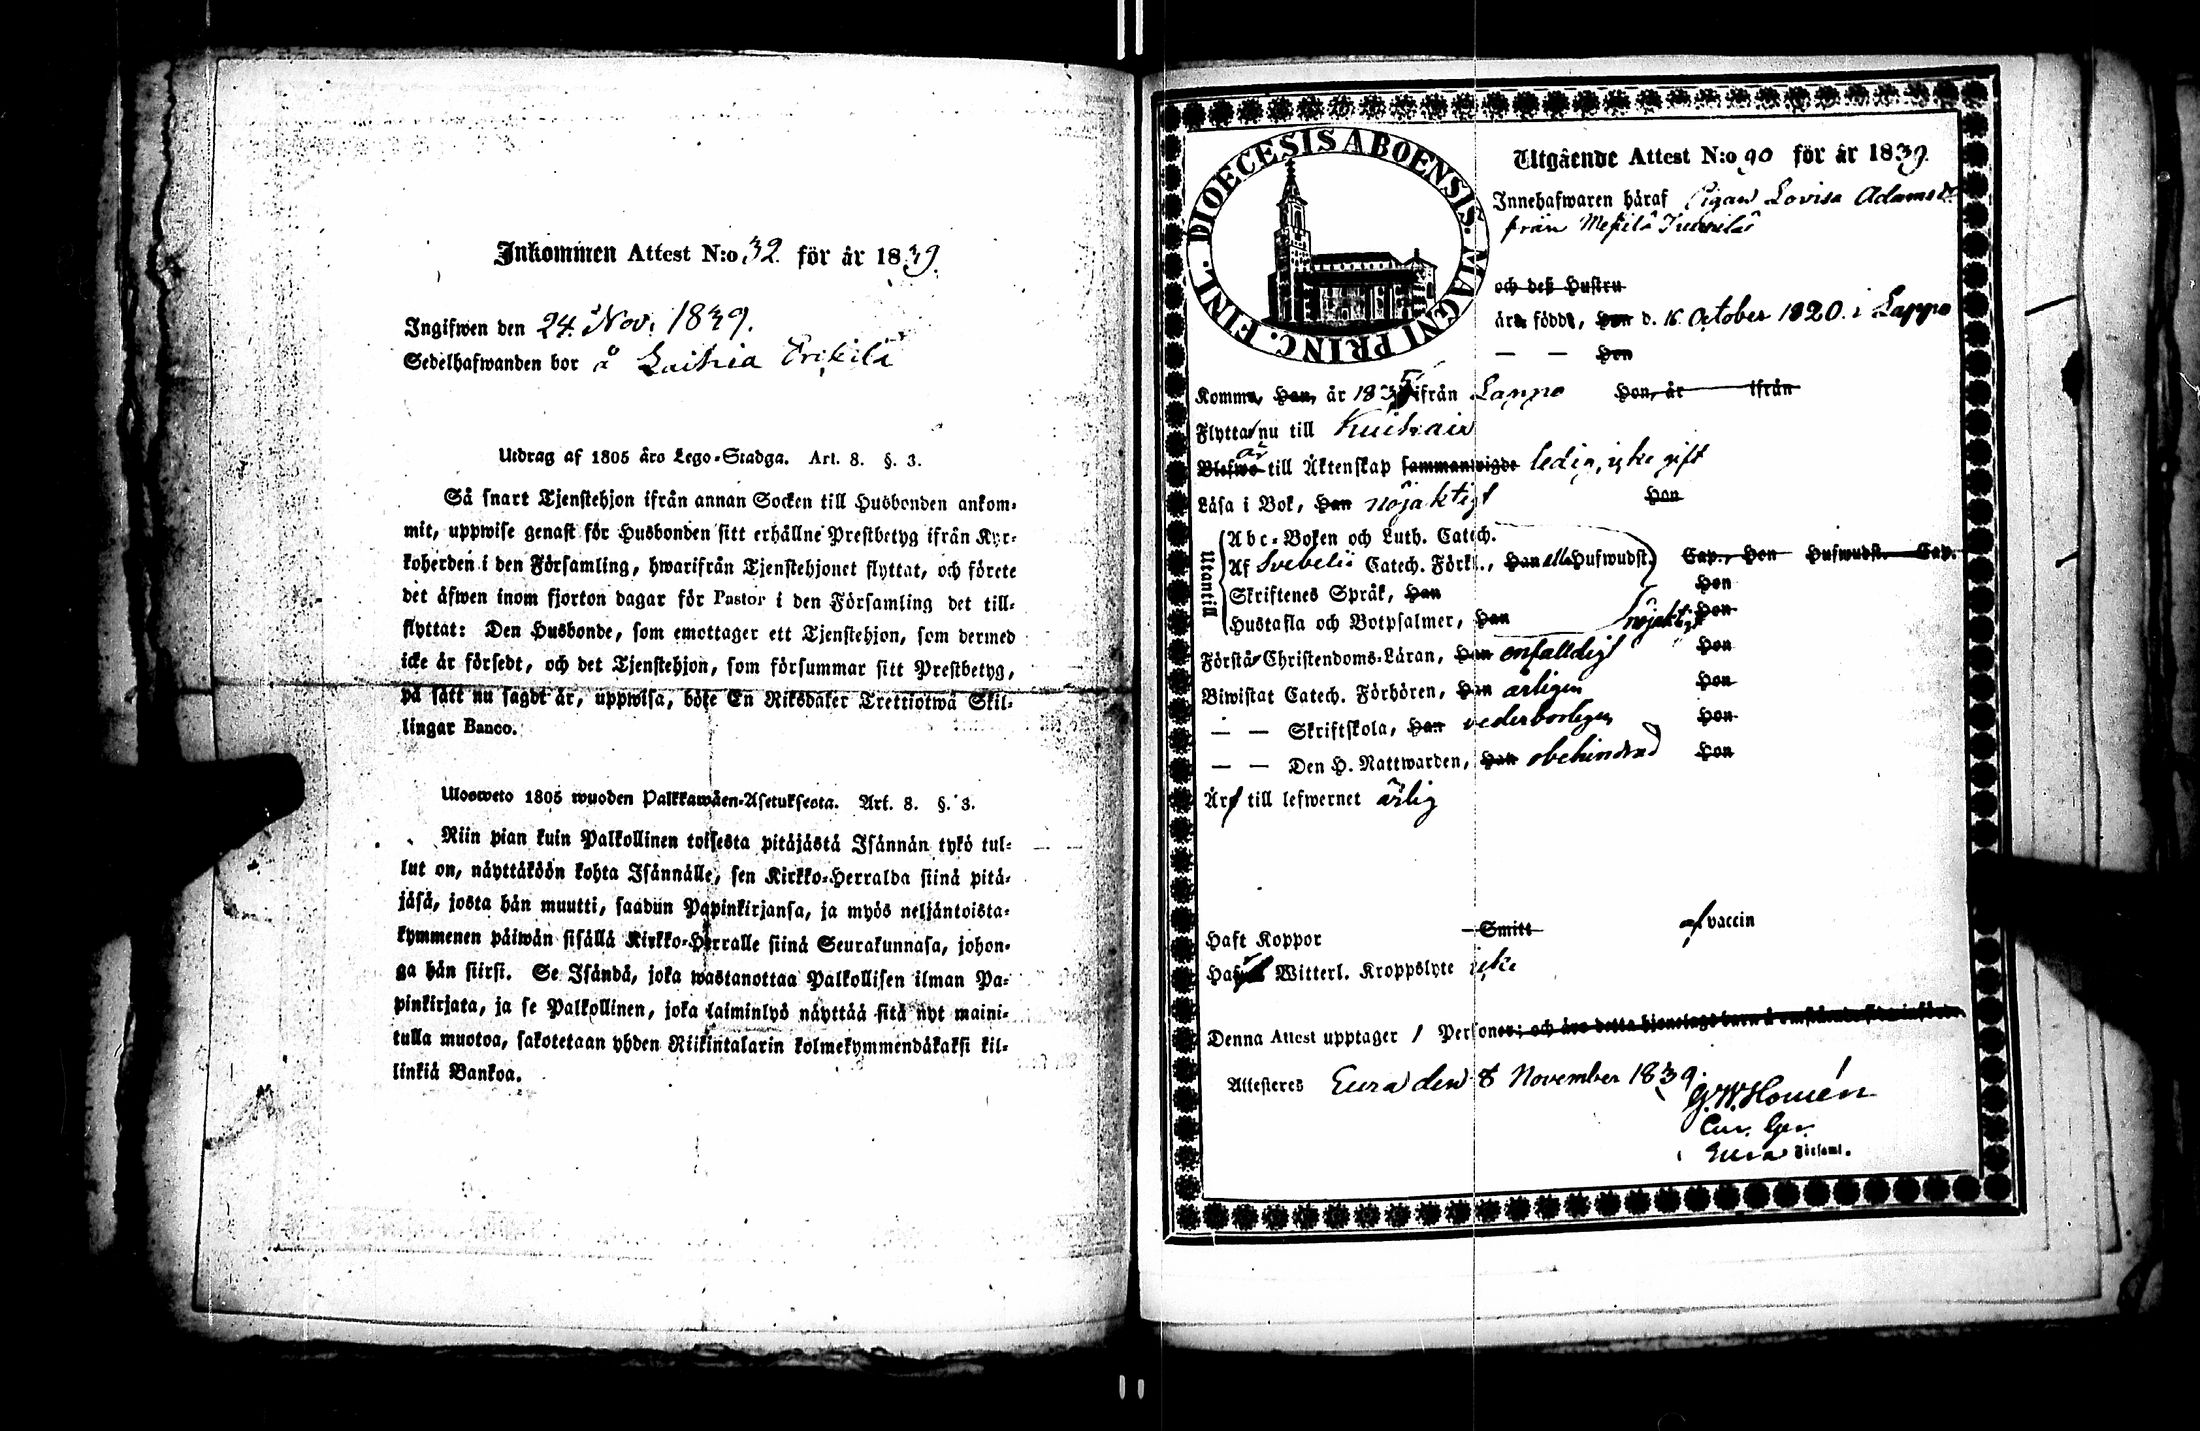 Inkommen Attest N:o 32 för år 1839.
Ingifwen den 24 Nov. 1839.
Sedelhafwanden bor å
Utdrag af 1805 års Lego-Stadga. Art. 8. §. 3.
Så snart Tjenstehjon ifrån annan Socken till Husbonden ankom-
mit, uppwise genast för Husbonden sitt erhållne Prestbetyg ifrån Kyr-
koherden i den Församling, hwarifrån Tjenstehjonet flyttat, och förete
det äfwen inom fjorton dagar för Pastor i den Församling det till-
flyttat: Den Husbonde, som emottager ett Tjenstehjon, som dermed
icke är försedt, och det Tjenstehjon, som försummar sitt Prestbetyg,
på sätt nu sagdt är, uppwisa, böte En Riksdaler Trettiotwå Skil-
lingar Banco.
Ulosweto 1805 wuoden Palkkawäen-Asetuksesta. Art. 8. §. 3.
Niin pian kuin Palkollinen toisesta pitäjästä Isännän tykö tul-
lut on, näyttäköön kohta Isännälle, sen Kirkko-Herralda siinä pitä-
jäsä, josta hän muutti, saadun Papinkirjansa, ja myös neljäntoista-
kymmenen päiwän sisällä Kirkko-Herralle siinä Seurakunnasa, johon-
ga hän siirsi. Se Isändä, joka wastanottaa Palkollisen ilman Pa-
pinkirjata, ja se Palkollinen, joka laiminlyö näyttää sitä nyt maini-
tulla muotoa, sakotetaan yhden Riikintalarin kolmekymmendäkaksi kil-
linkiä Bankoa.
DIOECESIS ABOENSIS. MAGNI PRINC. FINL.
Utgående Attest N:o 90 för år 1839.
Innehafwaren häraf Pigan Lovisa Adamsdr
från
och deß Hustru
äro födde, Han d. 16 October 1820 i Lappo
— — Hon
Komme, Han, år 1835 ifrån Lappo Hon, år ifrån
Flyttar nu till
Blefwo är till Äktenskap sammanwigde ledig, icke gift
Läsa i Bok, Han nöjaktigt Hon
Utantill
Abc-Boken och Luth. Catech.
Af Svebelii Catech. Förkl., Han alla Hufwudst. Cap., Hon Hufwudst. Cap.
Skriftenes Språk, Han Hon
Hustafla och Botpsalmer, Han nöjaktigt Hon
Förstå Christendoms-Läran, Han enfalldigt Hon
Biwistat Catech. Förhören, Han årligen Hon
— — Skriftskola, Han vederborligen Hon
— — Den H. Nattwarden, Han obehindrad Hon
Är till lefwernet ärlig
Haft Koppor Smitt af vaccin
Witterl. Kroppslyte icke
Denna Attest upptager 1 Personer; och äro detta hjonelags barn å omstående sida införde.
Attesteres Eura den 8 November 1839.
G. W. Homén
Cur. Ger.
Eura Församl.